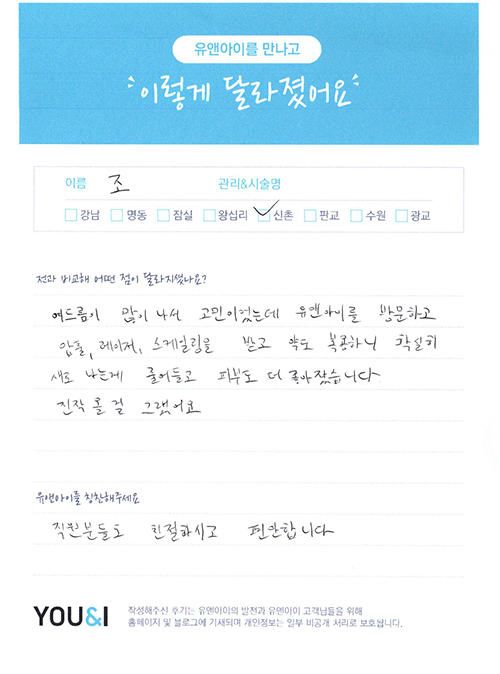 유앤아이를 만나고
이렇게 달라졌어요
이름 조 관리&시술명
강남 명동 잠실 왕십리 신촌 판교 수원 광교
전과 비교해 어떤 점이 달라지셨나요?
여드름이 많이 나서 고민이었는데 유앤아이를 방문하고
압출, 레이저, 스케일링을 받고 약도 복용하니 확실히
새로 나는게 줄어들고 피부도 더 좋아졌습니다
진작 올 걸 그랬어요
유앤아이를 칭찬해주세요
직원분들도 친절하시고 편안합니다
YOU&I
작성해주신 후기는 유앤아이의 발전과 유앤아이 고객님들을 위해
홈페이지 및 블로그에 기재되며 개인정보는 일부 비공개 처리로 보호됩니다.